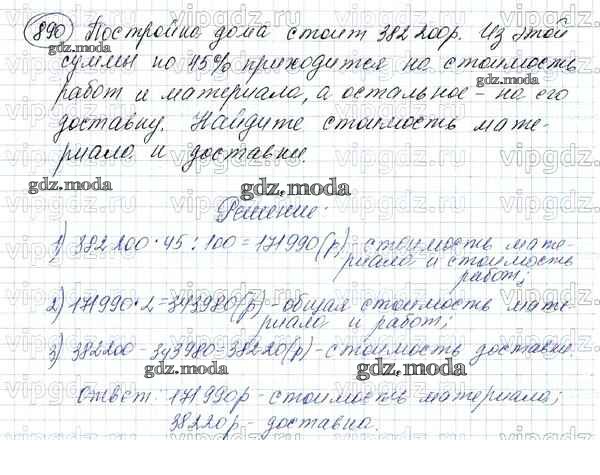 890) Постройка дома стоит 382200р. Из этой
суммы по 45% приходится на стоимость
работ и материала, а остальное - на его
доставку. Найдите стоимость мате-
риала и доставки.
Решение:
1) 382200·45:100=171990(р)-стоимость мате-
риала и стоимость
работ;
2) 171990·2=343980(р)-общая стоимость мате-
риала и работ;
3) 382200-343980=38220(р)-стоимость доставки.
Ответ: 171990р-стоимость материала;
38220р-доставка.
gdz.moda
gdz.moda
gdz.moda
gdz.moda
gdz.moda
gdz.moda
gdz.moda